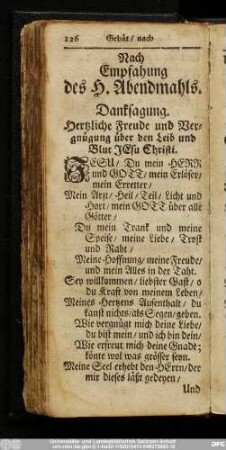 126 Gebät / nach
Nach
Empfahung
des H. Abendmahls.
Danksagung.
Hertzliche Freude und Ver-
gnügung über den Leib und
Blut JEsu Christi.
JESU / Du mein HERR
und GOTT / mein Erlöser /
mein Erretter /
Mein Arzt / Heil / Teil / Licht und
Hort / mein GOTT über alle
Götter /
Du mein Trank und meine
Speise / meine Liebe / Trost
und Raht /
Meine Hoffnung / meine Freude /
und mein Alles in der Taht.
Sey willkommen / liebster Gast / o
du Kraft von meinem Leben /
Meines Hertzens Aufenthalt / du
kanst nichts / als Segen / geben.
Wie vergnügt mich deine Liebe /
du bist mein / und ich bin dein /
Wie erfreut mich deine Gnade;
könte wol was grösser seyn.
Meine Seel erhebt den HErrn / der
mir dieses läßt gedeyen /
Und
Universitäts- und Landesbibliothek Sachsen-Anhalt